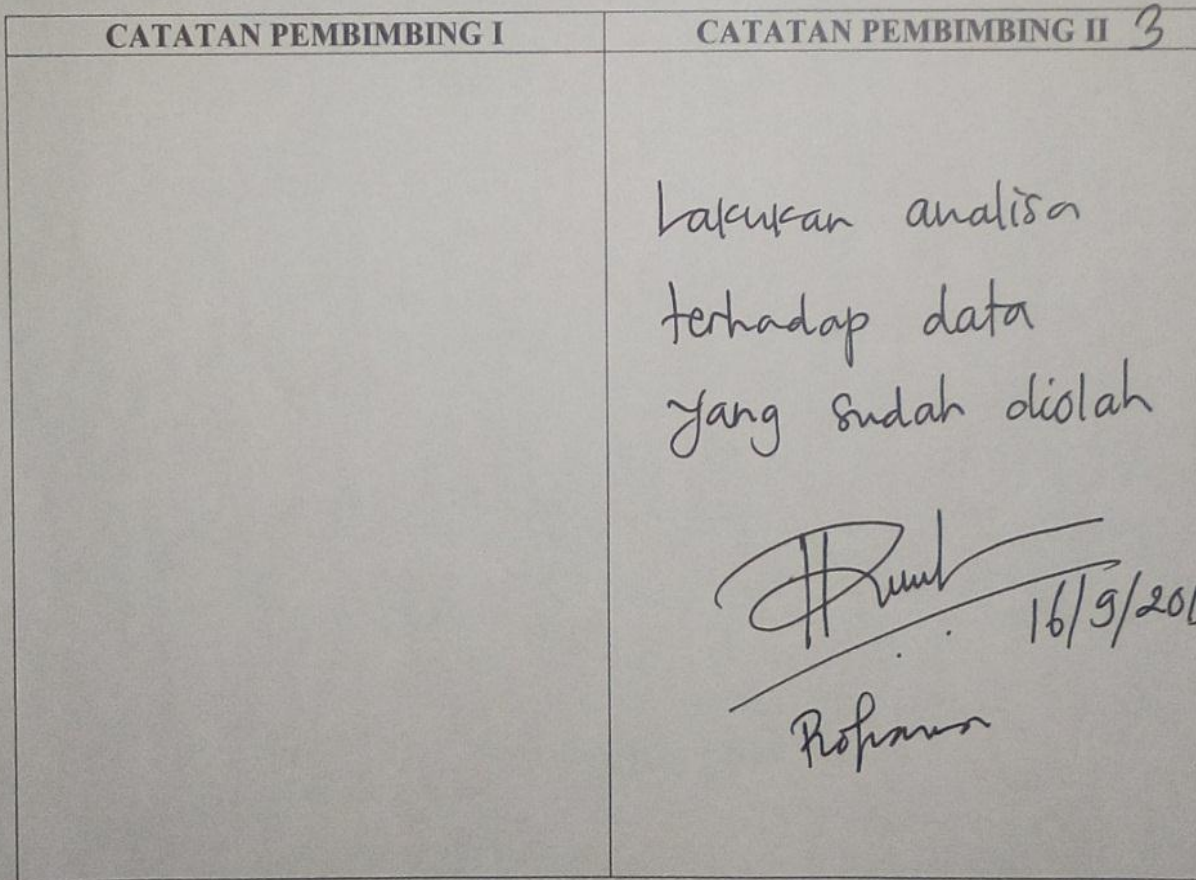 CATATAN PEMBIMBING I
CATATAN PEMBIMBING II 3
Lakukan analisa
terhadap data
yang sudah diolah
16/9/201